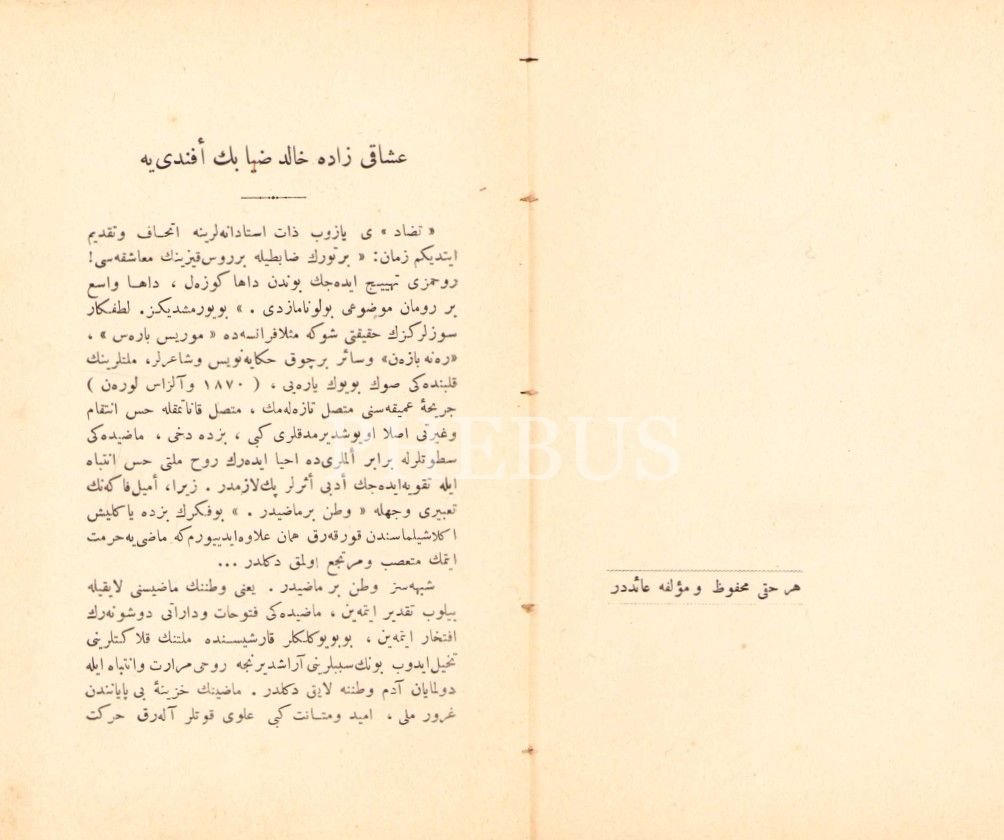 هر حقی محفوظ و مؤلفه عائددر
عشاقی زاده خالد ضیا بك أفندی یه
« تضاد » ی یازوب ذات استادانه‌لرینه اتحـاف وتقدیم
ایتدیكم زمان: « برتورك ضابطیله برروس‌قیزینك معاشقه‌سی!
روحمزی تهییج ایده‌جك بوندن داها كوزه‌ل ، داهـا واسع
بر رومان موضوعی بولونامازدی . » بویورمشدیكز. لطفكار
سوزلركزك حقیقتی شوكه مثلافرانسه‌ده « موریس باره‌س » ،
«ره‌نه بازه‌ن» وسائر برچوق حكایه‌نویس وشاعرلر، ملتلرینك
قلبنده‌كی صوك بویوك یاره‌یی ، ( ١٨٧٠ وآلزاس لوره‌ن )
جریحهٔ عمیقه‌سنی متصل تازه‌له‌مك ، متصل قاناتمقله حس انتقام
وغیرتی اصلا اویوشدیرمدقلری كبی ، بزده دخی ، ماضیده‌كی
سطوتلرله برابر ألملری‌ده احیا ایده‌رك روح ملتی حس انتباه
ایله تقویه‌ایده‌جك أدبی أثرلر پك‌لازمدر . زیرا، أمیل‌فاكه‌نك
تعبیری وجهله « وطن برماضیدر . » بوفكرك بزده یاكلیش
اكلاشیلماسندن قورقه‌رق همان علاوه‌ایدییورم‌كه ماضی‌یه‌حرمت
ایتمك متعصب ومرتجع اولمق دكلدر ...
شبهه‌سز وطن بر ماضیدر . یعنی وطننك ماضیسنی لایقیله
بیلوب تقدیر ایتمه‌ین ، ماضیده‌كی فتوحات وداراتی دوشونه‌رك
افتخار ایتمه‌ین ، بوبویوكلكلر قارشیسـنده ملتنك فلاكتلرینی
تخیل‌ایدوب بونك‌سببلرینی آراشدیرنجه روحی‌مرارت وانتباه ایله
دولمایان آدم وطننه لایق دكلدر . ماضینك خزینهٔ بی پایانندن
غرور ملی ، امید ومتـانت كبی علوی قوتلر آله‌رق حركت
PLEBUS